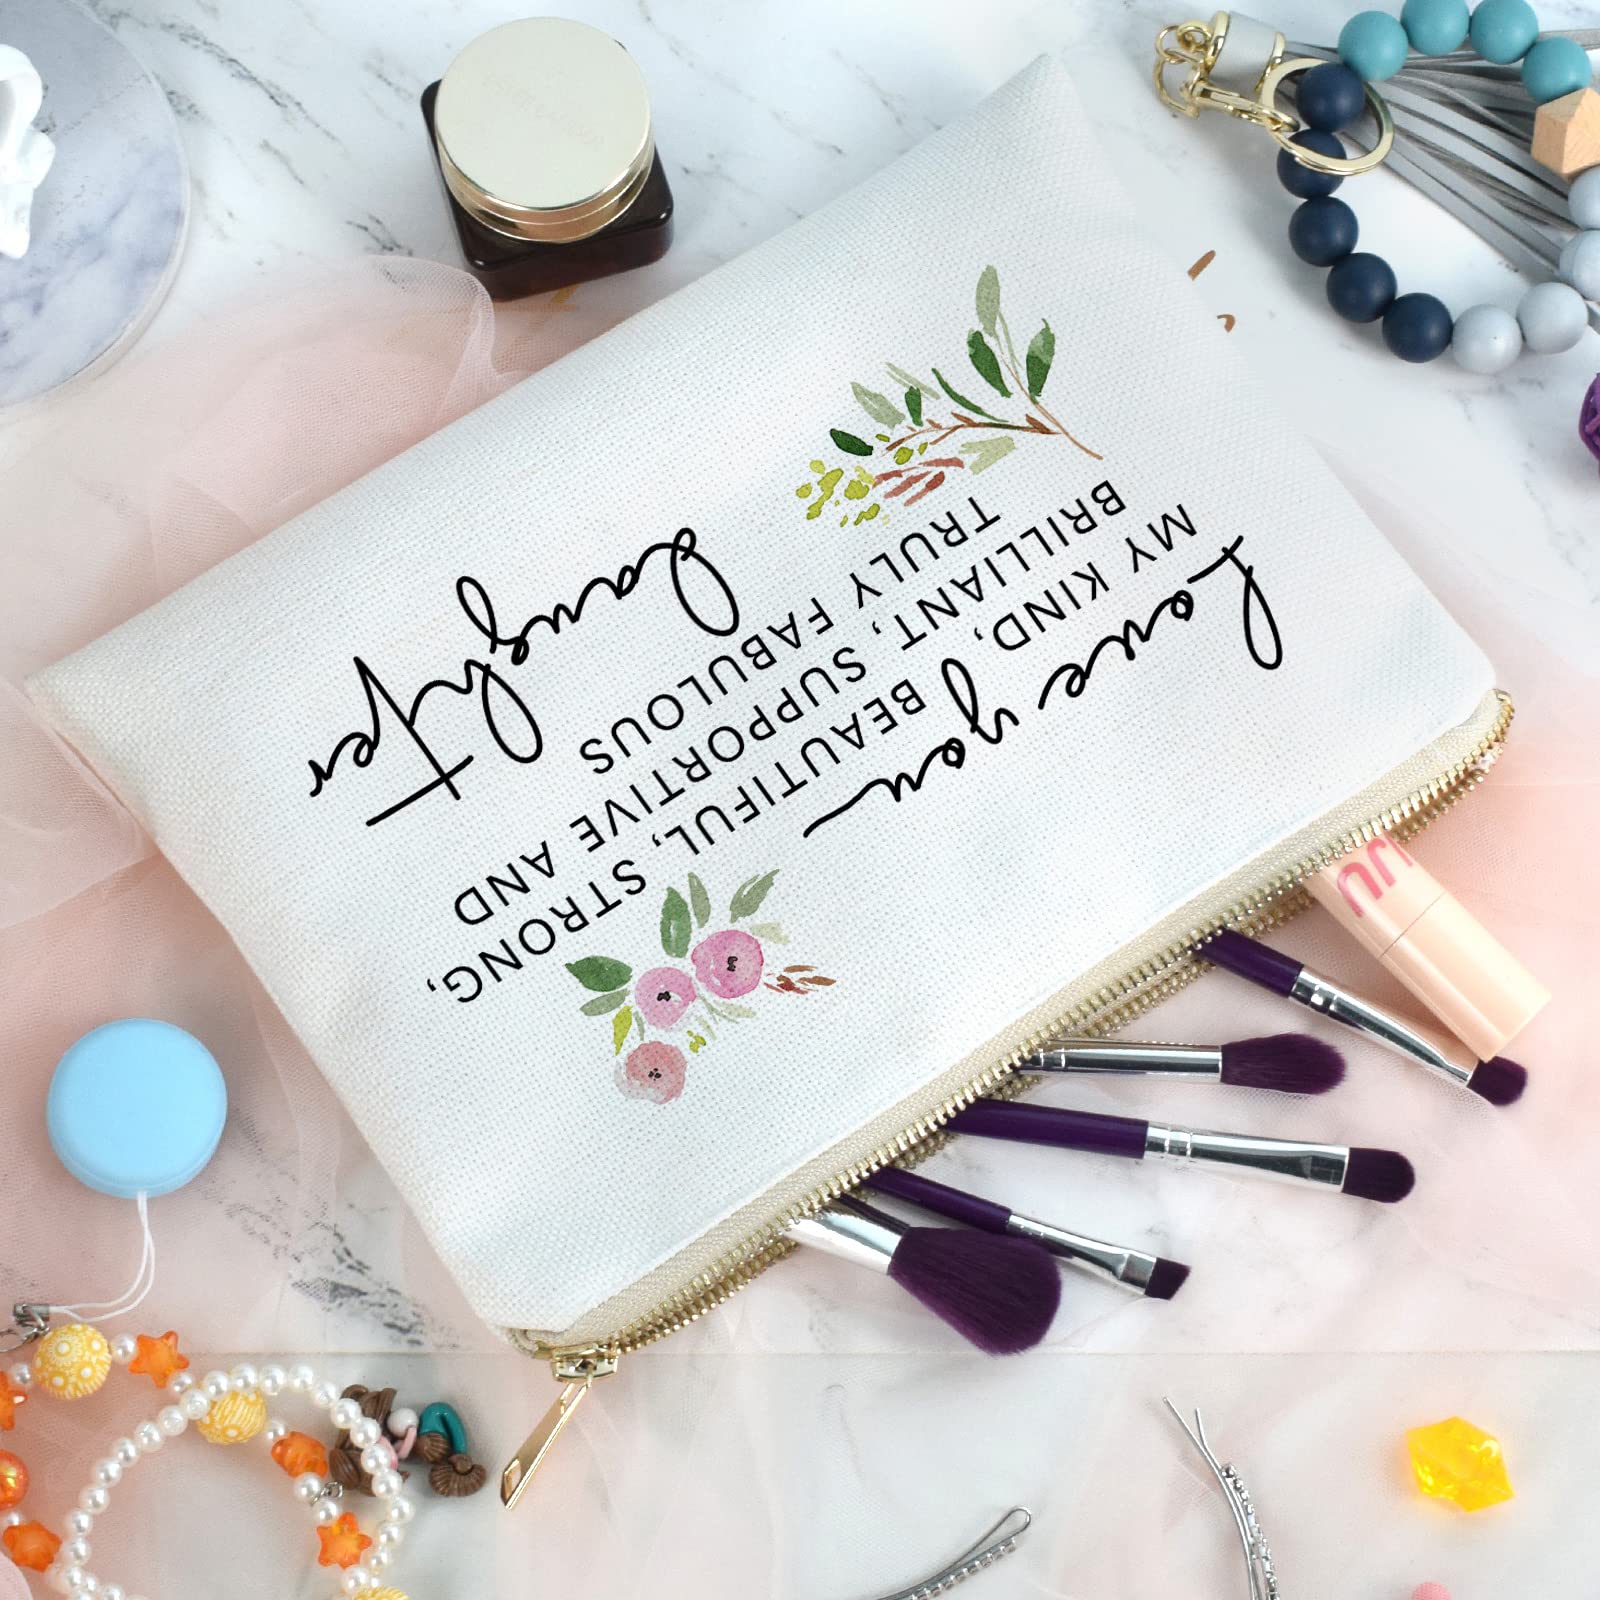 Love you
MY KIND, BEAUTIFUL, STRONG,
BRILLIANT, SUPPORTIVE AND
TRULY FABULOUS
daughter